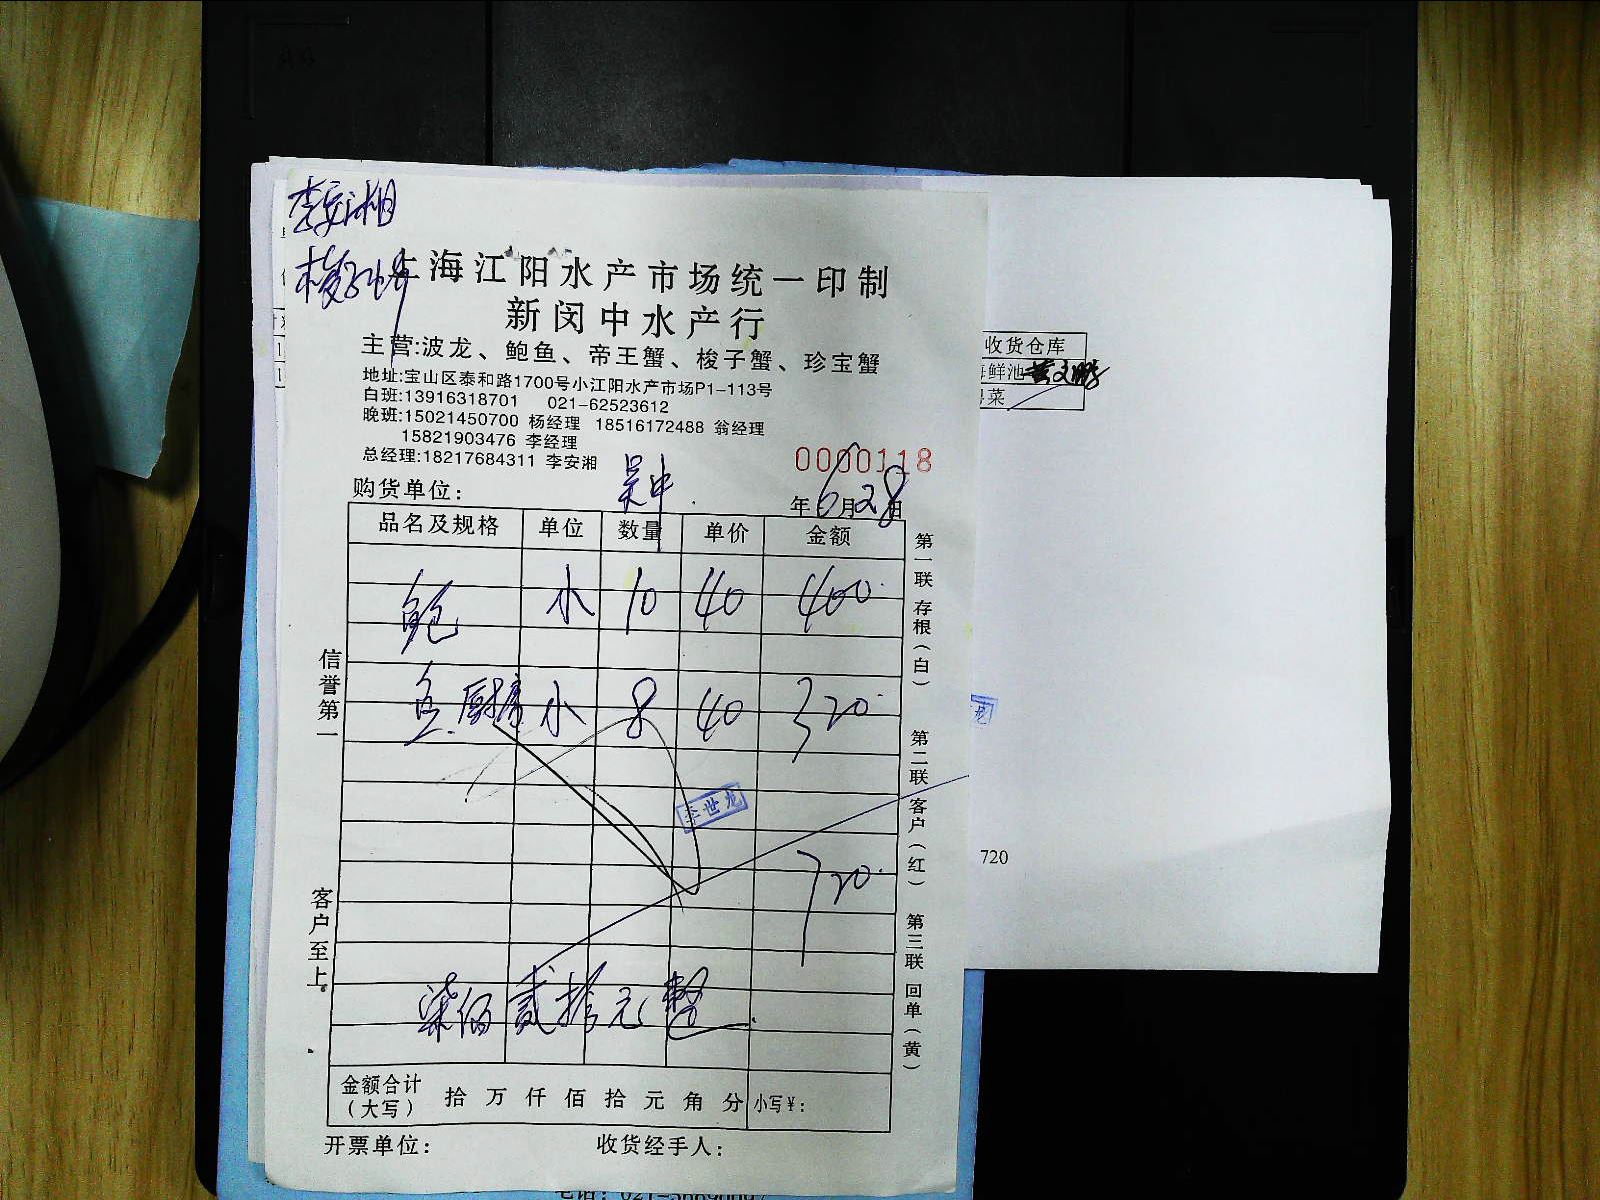 李安湘
上海江阳水产市场统一印制
新闵中水产行
主营:波龙、鲍鱼、帝王蟹、梭子蟹、珍宝蟹
地址:宝山区泰和路1700号小江阳水产市场P1-113号
白班:13916318701 021-62523612
晚班:15021450700 杨经理 18516172488 翁经理
15821903476 李经理
总经理:18217684311 李安湘
0000118
购货单位: 吴中 年6月28日
品名及规格 单位 数量 单价 金额
鲍 小 10 40 400
鱼.厨房 小 8 40 320
李世龙
720
柒佰贰拾元整
金额合计(大写) 拾 万 仟 佰 拾 元 角 分 小写¥:
开票单位: 收货经手人:
信誉第一
客户至上。
第一联 存根(白) 第二联 客户(红) 第三联 回单(黄)
收货仓库
海鲜池
粤菜
720